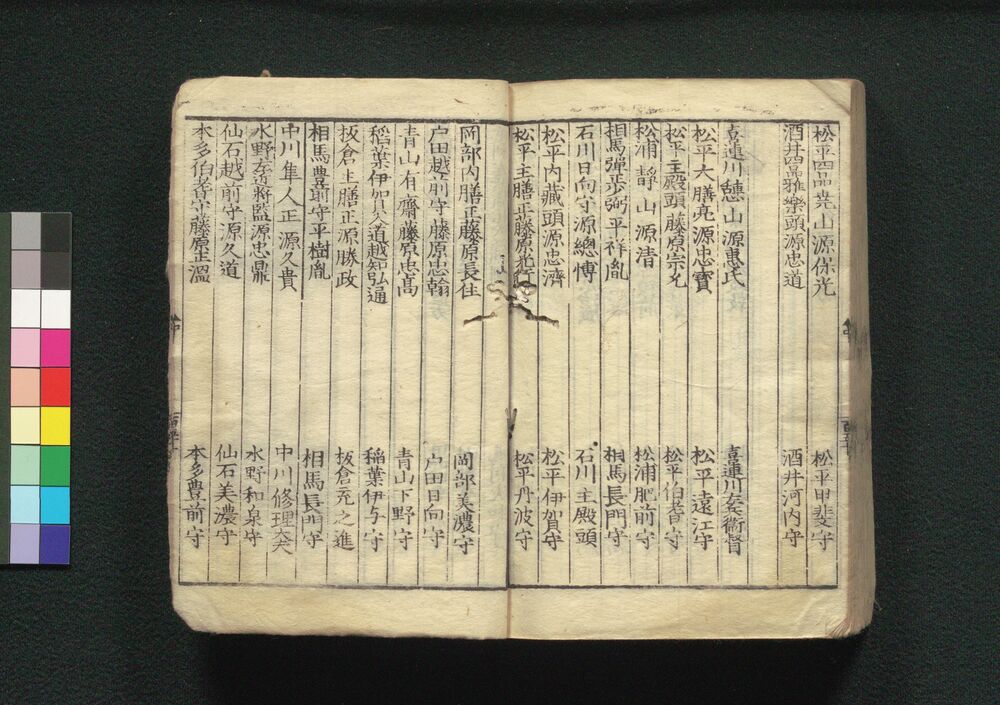 松平四品堯山源保光 松平甲斐守
酒井四品雅樂頭源忠道 酒井河内守
喜連川穗山源惠氏 喜連川左兵衞督
松平大膳亮源忠寶 松平遠江守
松平主殿頭藤原宗允 松平伯耆守
松浦靜山源清 松浦肥前守
相馬彈正弼平祥胤 相馬長門守
石川日向守源總博 石川主殿頭
松平内藏頭源忠濟 松平伊賀守
松平主膳正藤原光行 松平丹波守
岡部内膳正藤原長住 岡部美濃守
户田越前守藤原忠翰 户田日向守
青山有齋藤原忠高 青山下野守
稲葉伊与入道越知弘通 稲葉伊与守
板倉主膳正源勝政 板倉元之進
相馬豊前守平樹胤 相馬長門守
中川隼人正源久貴 中川修理大夫
水野左近將監源忠鼎 水野和泉守
仙石越前守源久道 仙石美濃守
本多伯耆守藤原正温 本多豊前守